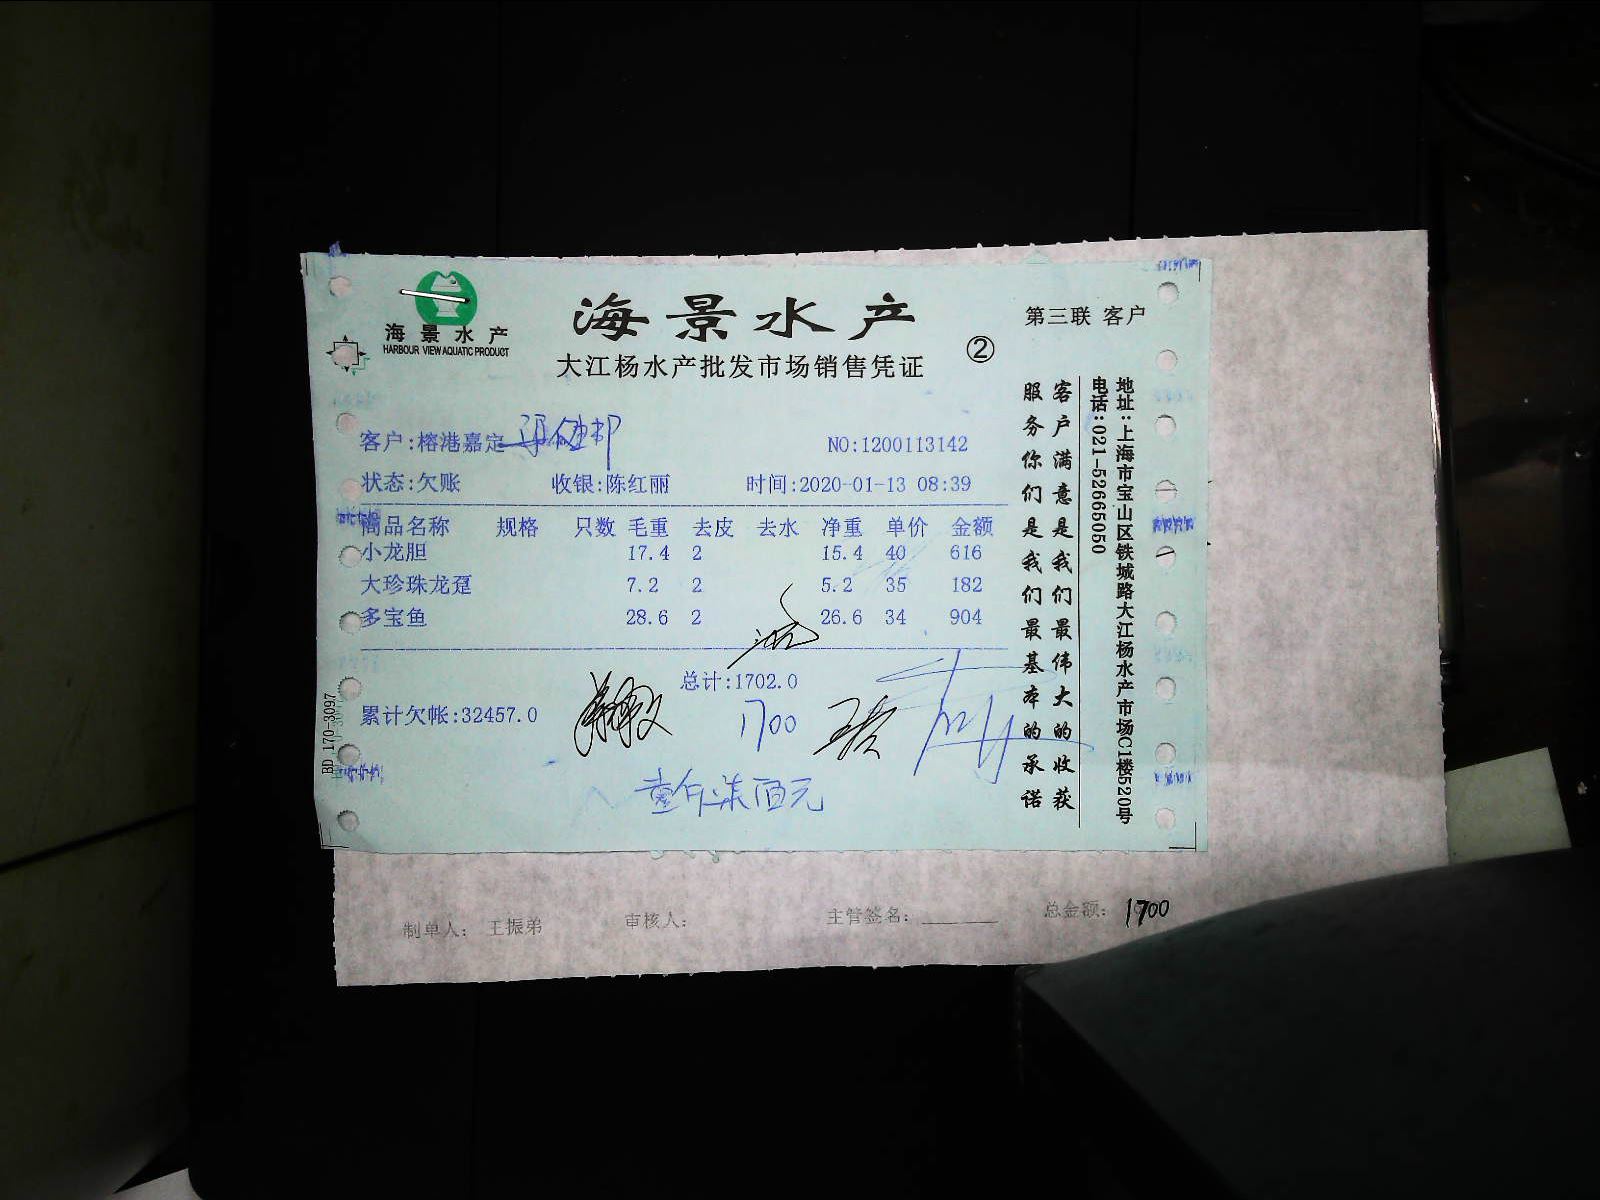 海景水产
HARBOUR VIEW AQUATIC PRODUCT
海景水产
大江杨水产批发市场销售凭证
②
第三联 客户
客户:榕港嘉定
NO:1200113142
状态:欠账 收银:陈红丽 时间:2020-01-13 08:39
商品名称 规格 只数 毛重 去皮 去水 净重 单价 金额
小龙胆 17.4 2 15.4 40 616
大珍珠龙趸 7.2 2 5.2 35 182
多宝鱼 28.6 2 26.6 34 904
总计:1702.0
累计欠帐:32457.0
1700
壹仟柒佰元
客户满意是我们最伟大的收获
服务你们是我们最基本的承诺
地址:上海市宝山区铁城路大江杨水产市场C1楼520号
电话:021-52665050
BD 170-3097
制单人: 王振弟 审核人: 主管签名: 总金额: 1700